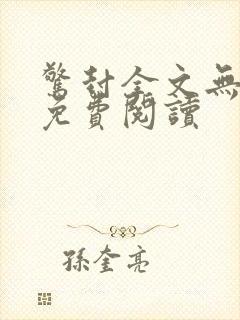 驚封全文無
免費閱讀
孫奎亮